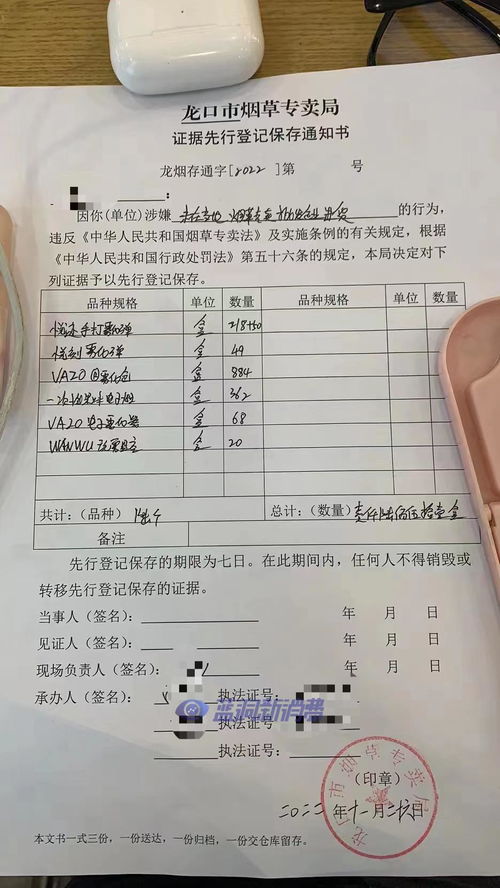 龙口市烟草专卖局
证据先行登记保存通知书
龙烟存通字[2022]第 号
:
因你(单位)涉嫌 未在当地烟草专卖批发企业进货 的行为,
违反《中华人民共和国烟草专卖法》及实施条例的有关规定,根据
《中华人民共和国行政处罚法》第五十六条的规定,本局决定对下
列证据予以先行登记保存。
品种规格 单位 数量 品种规格 单位 数量
盒 218+50
悦刻雾化弹 盒 49
VAZO 雾化 盒 884
一次性 电子烟 盒 362
VAZO电子雾化器 盒 68
WANWU 盒 20
共计:(品种) 陆个 总计:(数量) 壹仟陆佰 拾壹盒
备注
先行登记保存的期限为七日。在此期间内,任何人不得销毁或
转移先行登记保存的证据。
当事人(签名): 年 月 日
见证人(签名): 年 月 日
现场负责人(签名): 年 月 日
承办人(签名): 执法证号:
蓝洞新消费
执法证号:
执法证号:
(印章)
二〇二二年十一月二十六日
龙口市烟草专卖局
本文书一式三份,一份送达,一份归档,一份交仓库留存。